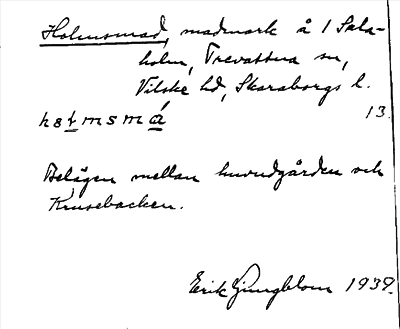 Holmsmad, madmark å 1 Sala-
holm, Trevattna sn,
Vilske hd, Skaraborgs l.
hɵłmsmá 13.
Belägen mellan huvudgården och
Krusebacken.
Erik Ljungblom 1939.